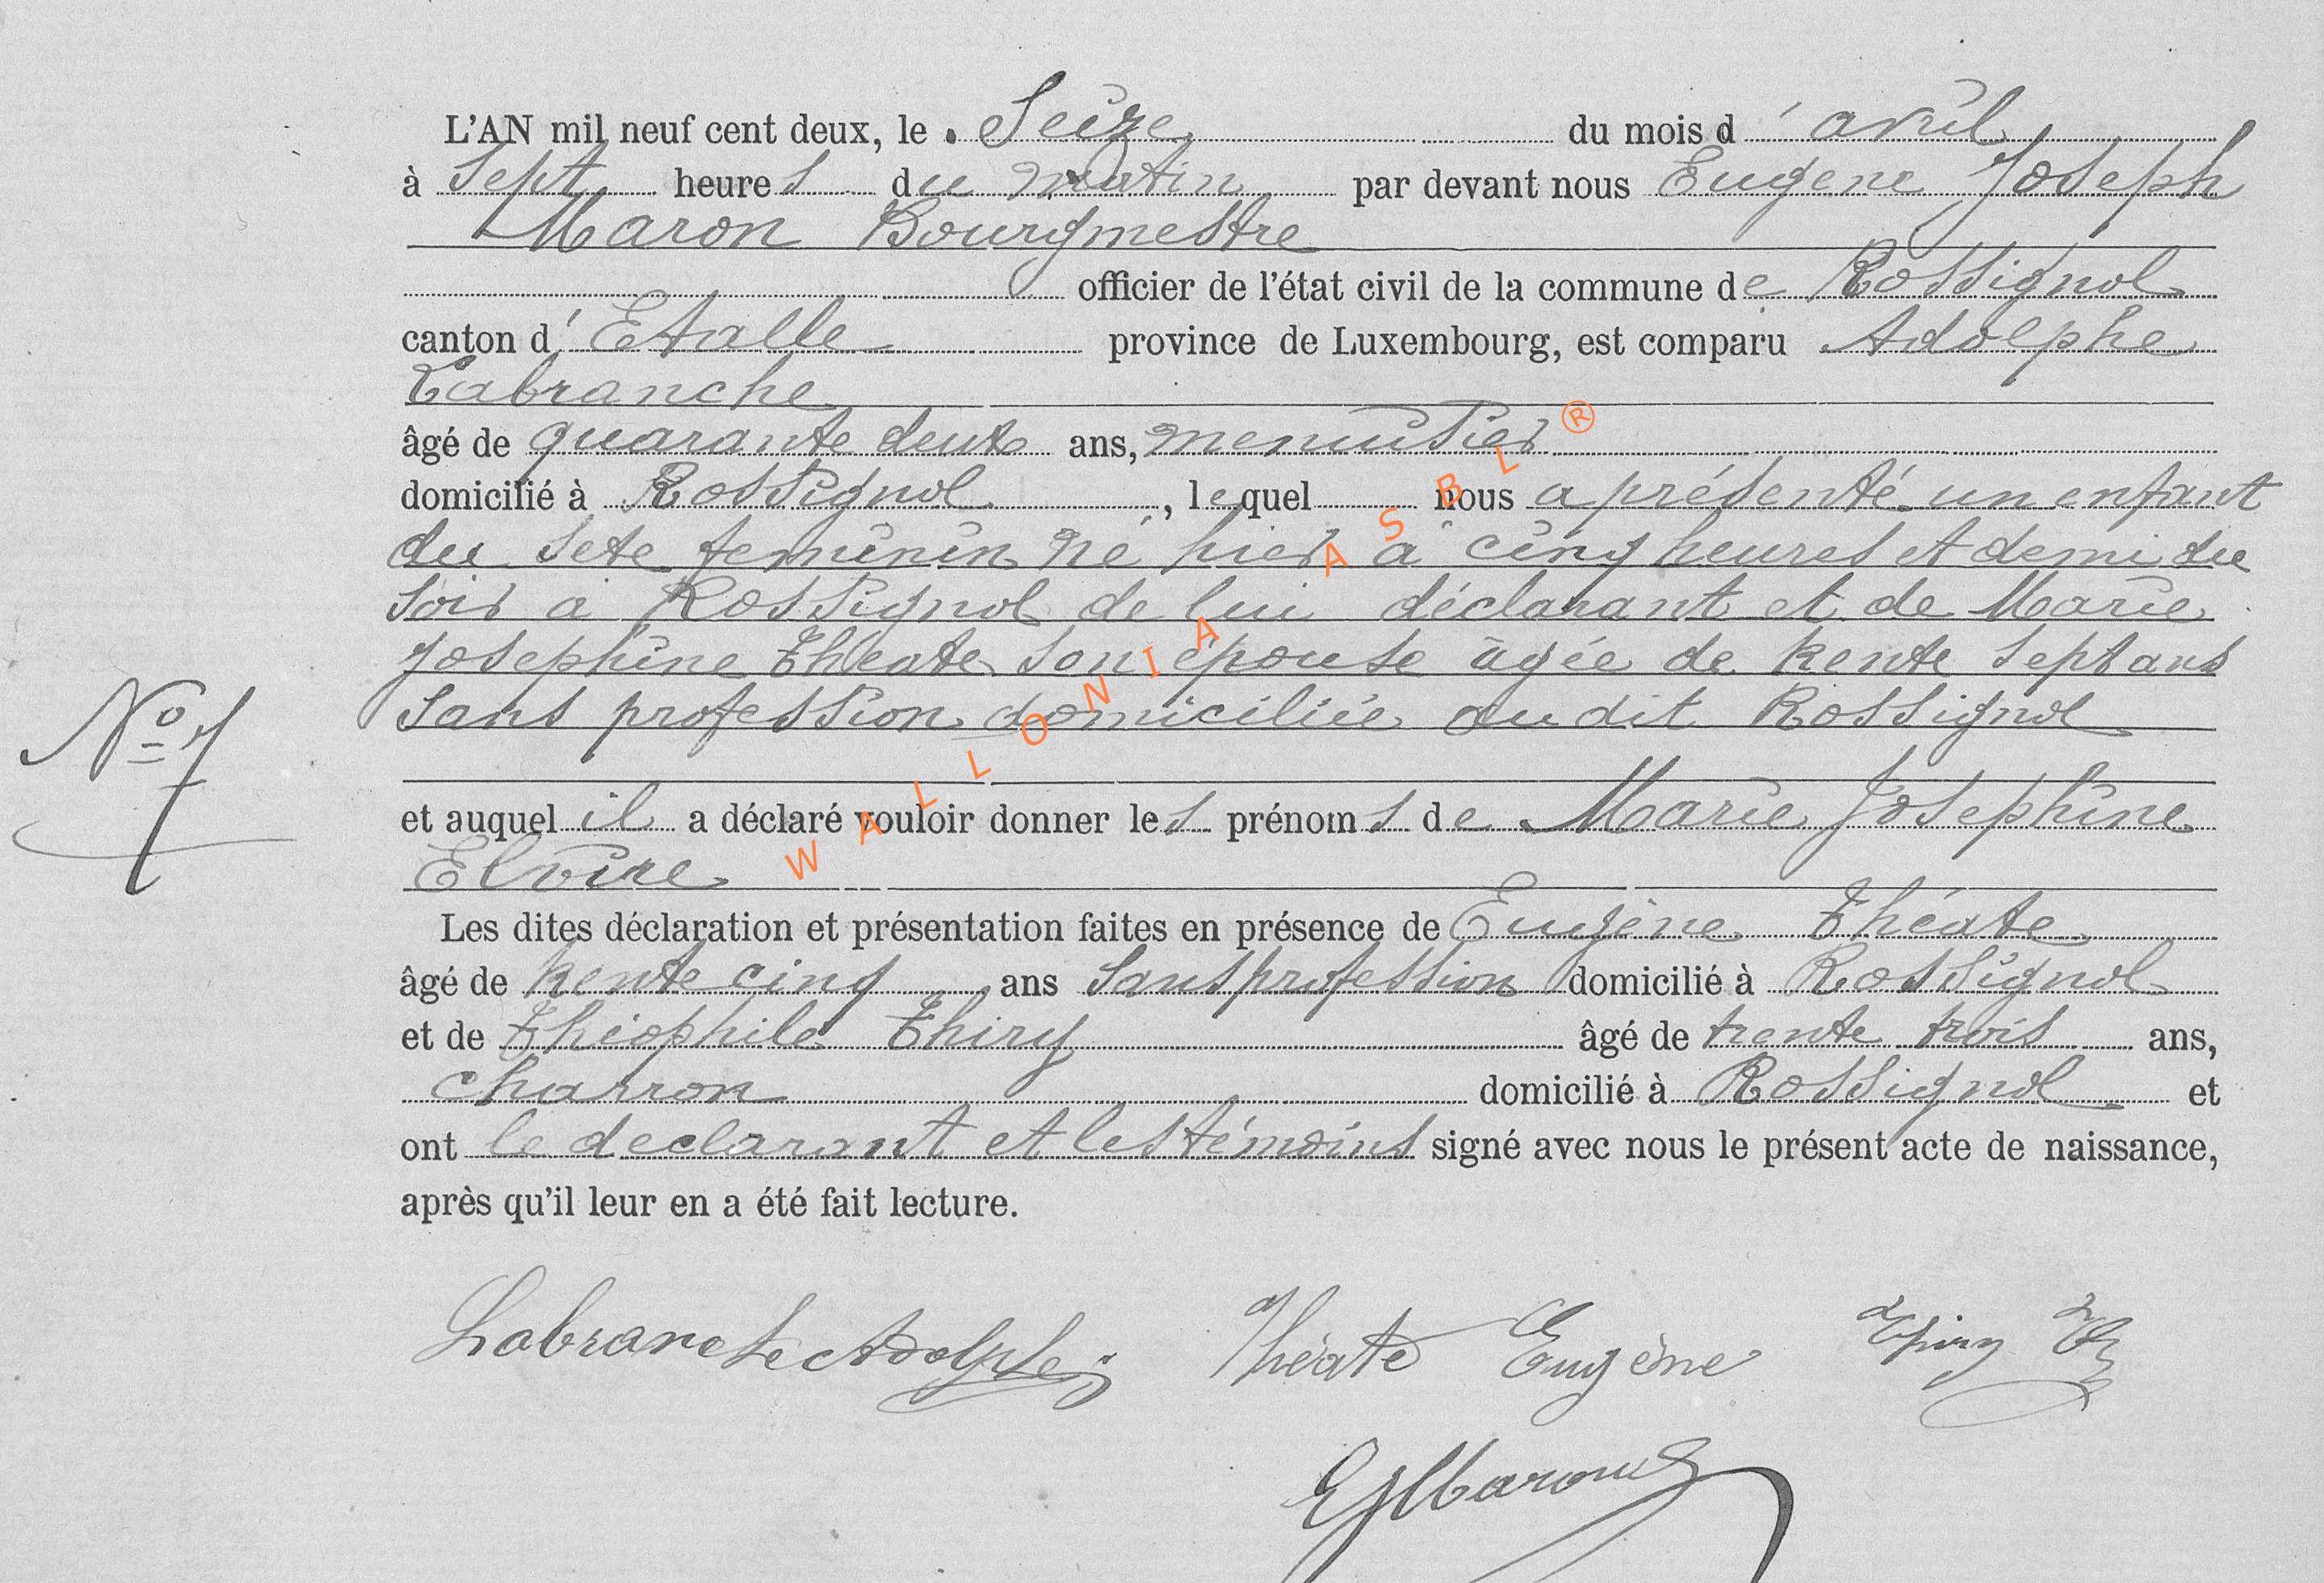 L'AN mil neuf cent deux, le Seize du mois d'avril
à Sept heures du matin par devant nous Eugene Joseph
Maron Bourgmestre
officier de l'état civil de la commune de Rossignol
canton d'Etalle province de Luxembourg, est comparu Adolphe
Labranche
âgé de quarante deux ans, menuisier
domicilié à Rossignol, lequel nous a présenté un enfant
du sexe feminin né hier à cinq heures et demi du
soir a Rossignol de lui déclarant et de Marie
Josephine Théate son épouse âgée de trente sept ans
sans profession domiciliée au dit Rossignol
N° 7
et auquel il a déclaré vouloir donner les prénoms de Marie Josephine
Elvire
Les dites déclaration et présentation faites en présence de Eugène Théate
âgé de trente cinq ans sans profession domicilié à Rossignol
et de Théophile Thiry âgé de trente trois ans,
charron domicilié à Rossignol et
ont le declarant et les témoins signé avec nous le présent acte de naissance,
après qu'il leur en a été fait lecture.
Labranche Adolphe Théate Eugène Thiry Th
EJMaron
WALLONIA ASBL ®